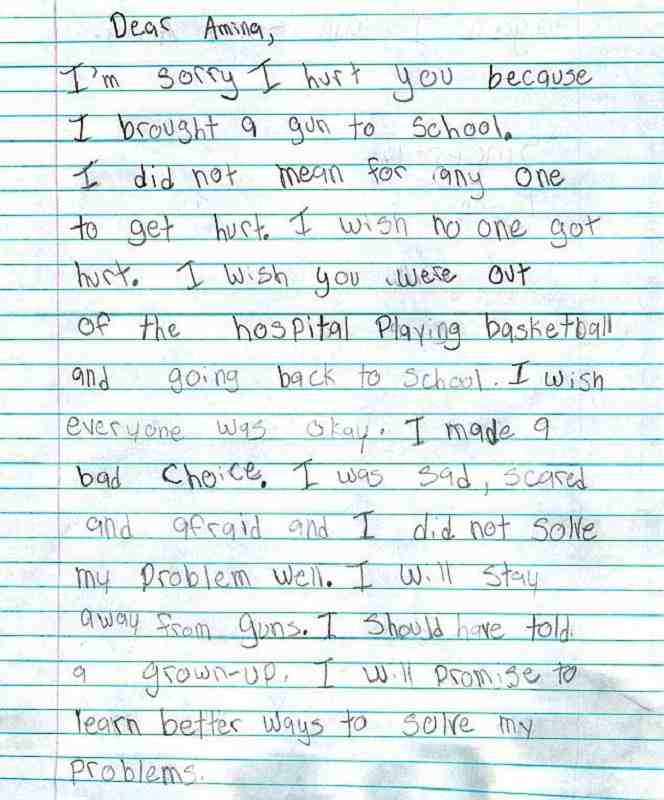 Dear Amina,
I'm sorry I hurt you because
I brought a gun to school.
I did not mean for any one
to get hurt. I wish no one got
hurt. I wish you were out
of the hospital Playing basketball
and going back to school. I wish
everyone was okay. I made a
bad choice. I was sad, scared
and afraid and I did not solve
my problem well. I will stay
away from guns. I should have told
a grown-up. I will promise to
learn better ways to solve my
problems.